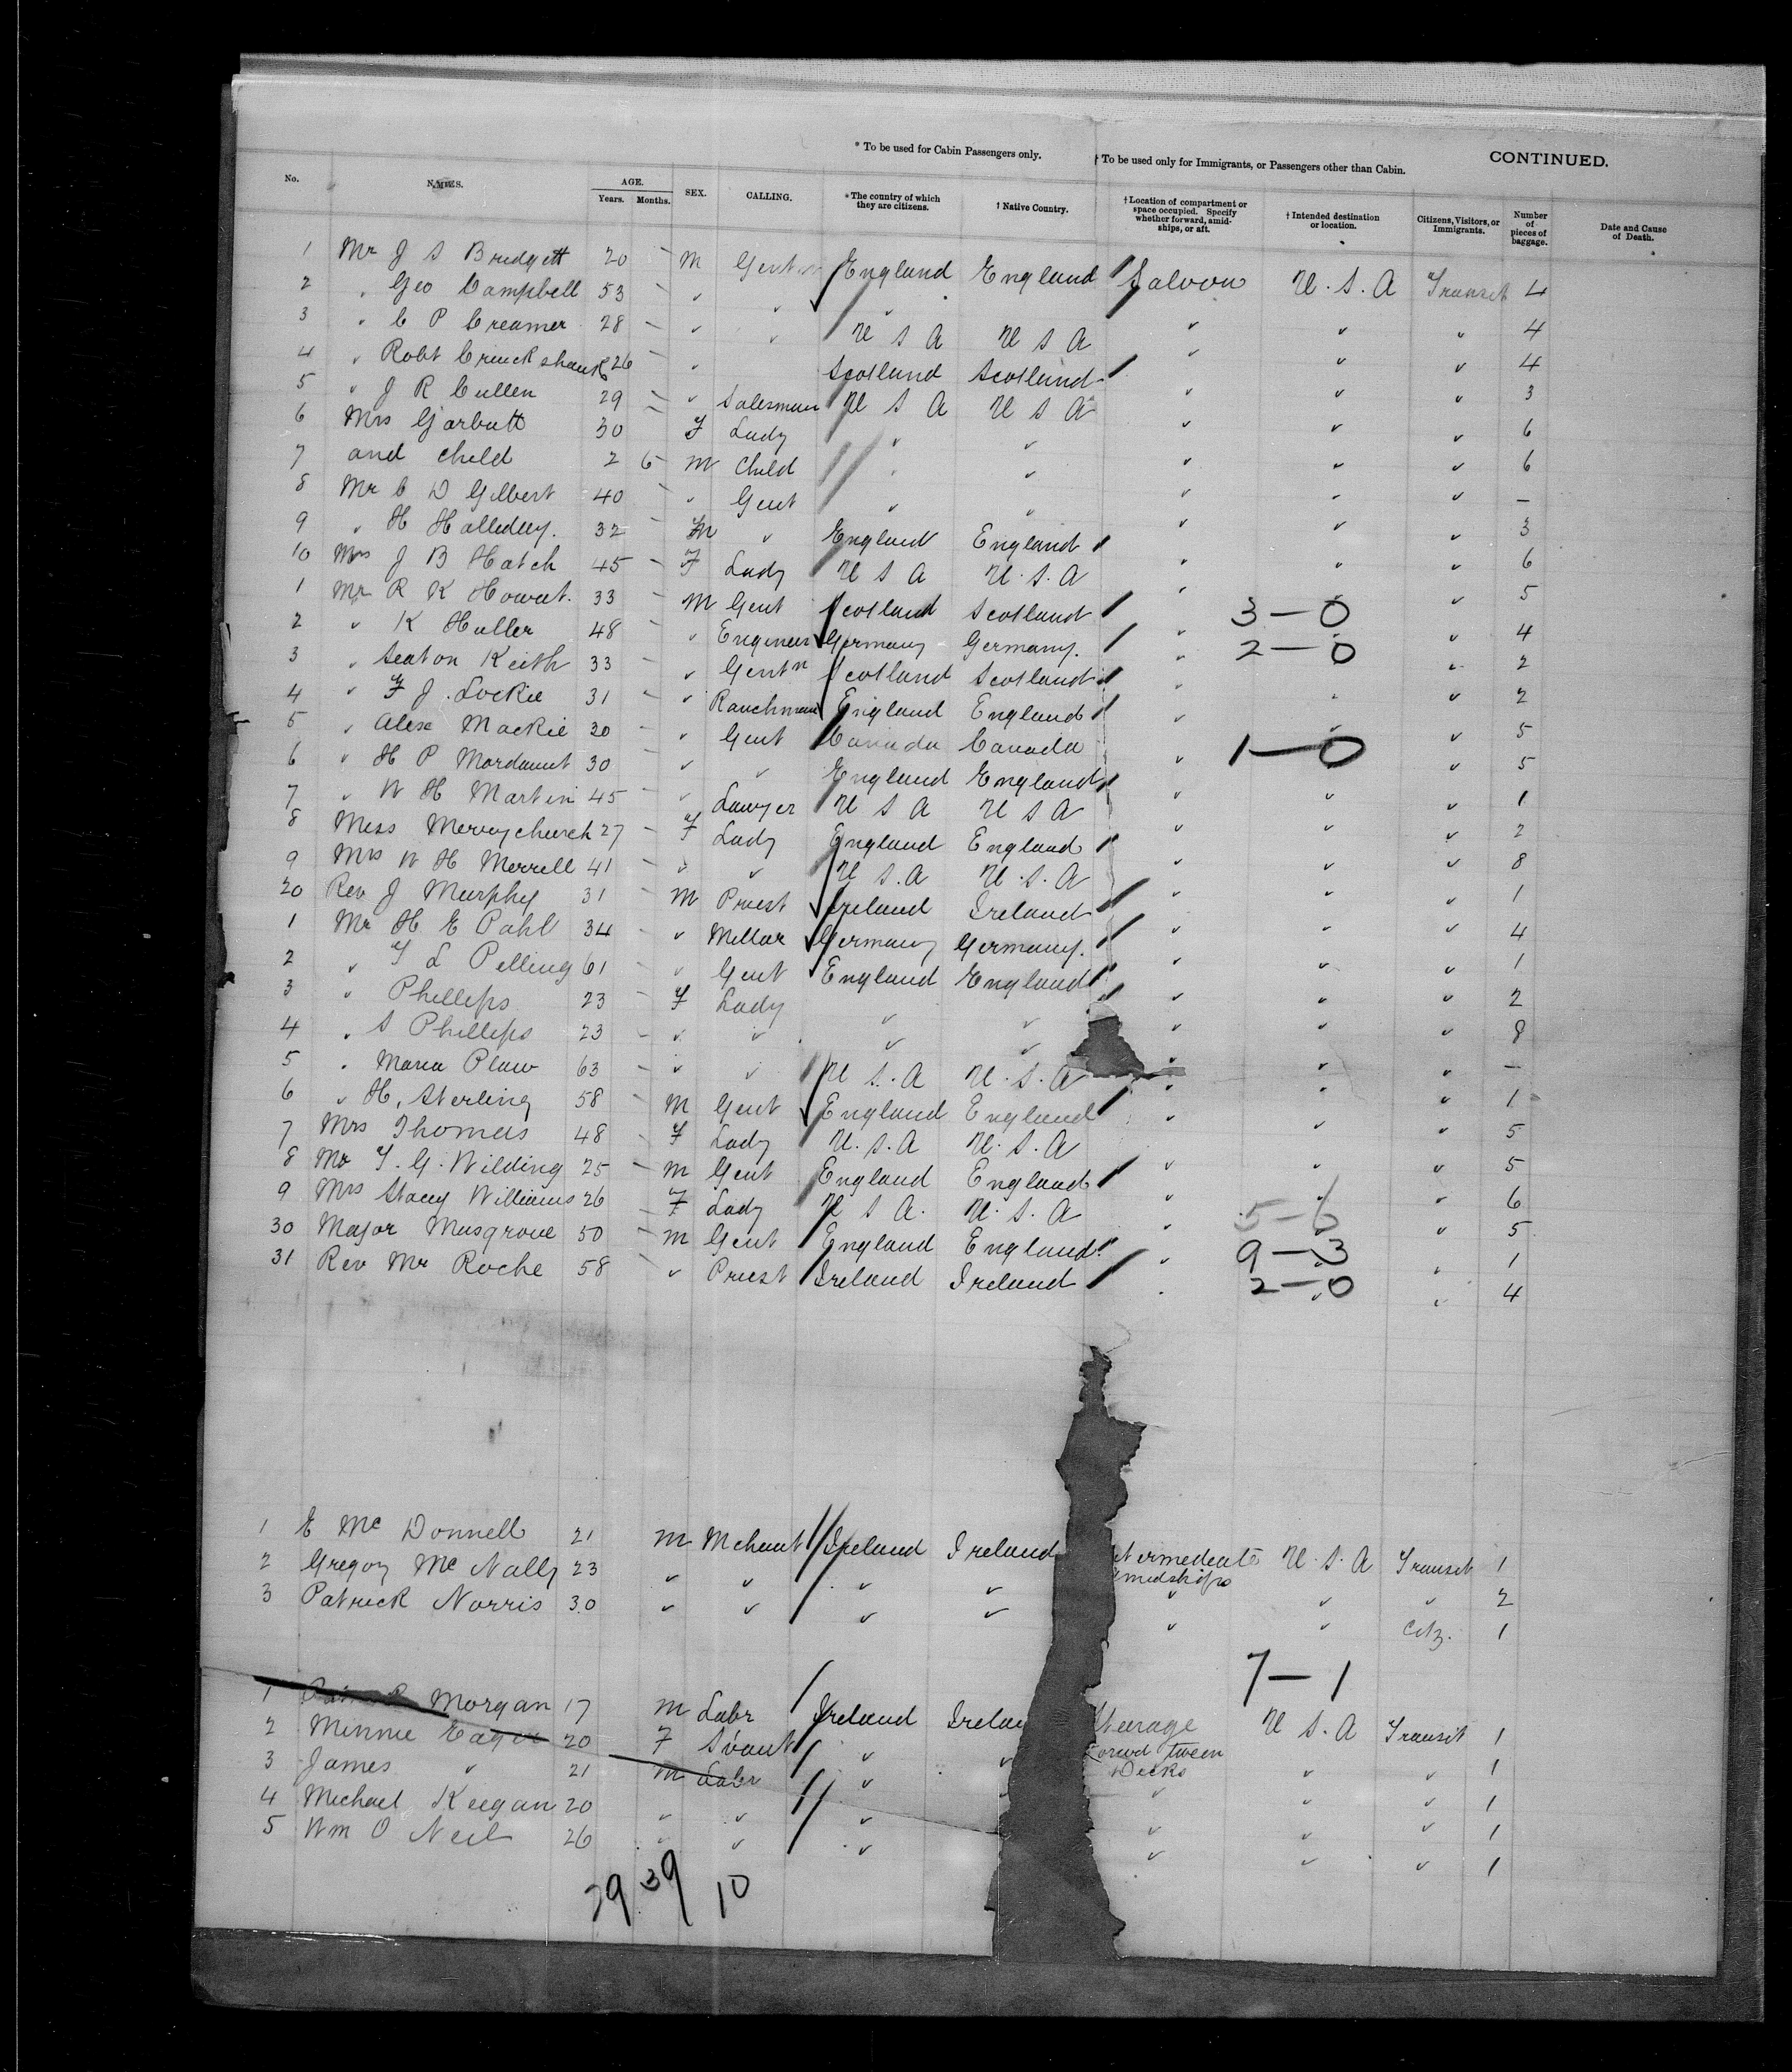 * To be used for Cabin Passengers only. † To be used only for Immigrants, or Passengers other than Cabin. CONTINUED.
No. NAMES. AGE. Years. Months. SEX. CALLING. *The country of which they are citizens. † Native Country. † Location of compartment or space occupied. Specify whether forward, amidships, or aft. † Intended destination or location. Citizens, Visitors, or Immigrants. Number of pieces of baggage. Date and Cause of Death.
1 Mr J S Bridgett 20 - M Gent England England Saloon U.S.A Transit 4
2 " Geo Campbell 53 - " " " " " " 4
3 " C P Creamer 28 - " " U S A U S A " " " 4
4 " Robt Cruickshank 26 - " Scotland Scotland " " " 3
5 " J R Cullen 29 - " Salesman U S A U S A " " " 6
6 Mrs Garbutt 30 - F Lady " " " " " 6
7 and child 2 6 M Child " " " " " -
8 Mr C D Gilbert 40 - " Gent " " " " " 3
9 " H Halliday. 32 - M " England England " " " 6
10 Mrs J B Hatch 45 - F Lady U S A U.S.A " " " 5
1 Mr R K Howat. 33 - M Gent Scotland Scotland " 3-0 " 4
2 " K Huller 48 - " Engineer Germany Germany. " 2-0 " 2
3 " Seaton Keith 33 - " Gentn Scotland Scotland " " 2
4 " F J. Lockie 31 - " Ranchman England England " " " 5
5 " Alex Mackie 30 - " Gent Canada Canada " 1-0 " 5
6 " H P Mordaunt 30 - " " England England " " " 1
7 " W H Martin 45 - " Lawyer U S A U S A " " " 2
8 Miss Merrychurch 27 - F Lady England England " " " 8
9 Mrs W H Merrell 41 - " " U S.A U.S.A " " " 1
20 Rev J Murphy 31 - M Priest Ireland Ireland " " " 4
1 Mr H E Pahl 34 - " Millar Germany Germany. " " " 1
2 " T L Pelling 61 - " Gent England England " " " 2
3 " Phillips 23 - F Lady " " " " " 8
4 " S Phillips 23 - " " " " " " " -
5 " Maria Plaw 63 - " " U S.A U.S.A " " " 1
6 " H. Sterling 58 - M Gent England England " " " 5
7 Mrs Thomas 48 - F Lady U.S.A U.S.A " " 5
8 Mr T.G. Wilding 25 - M Gent England England " " " 6
9 Mrs Stacey Williams 26 - F Lady U S A. U.S.A " 5-6 " 5
30 Major Musgrove 50 - M Gent England England. " 9-3 " 1
31 Rev Mr Roche 58 " Priest Ireland Ireland " 2-0 " 4
1 E Mc Donnell 21 M Mchant Ireland Ireland U.S.A Transit 1
2 Gregory Mc Nally 23 " " " " " " " 2
3 Patrick Norris 30 " " " " " " Citz. 1
7-1
1 Morgan 17 M Labr Ireland Irelan Steerage U S.A Transit 1
2 Minnie Eager 20 F Svant " " Forwd tween Decks " " 1
3 James " 21 M Labr " " " " 1
4 Michael Keegan 20 " " " " " " 1
5 Wm O Neil 26 " " " " " " 1
39 10